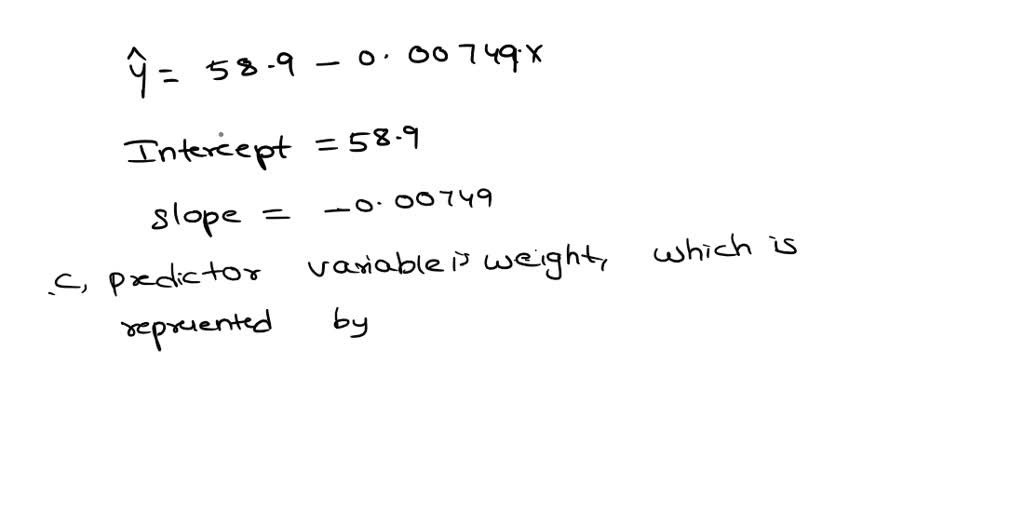 ŷ = 58.9 - 0.00749.x
Intercept = 58.9
slope = -0.00749
.c, predictor variable is weight, which is
represented by